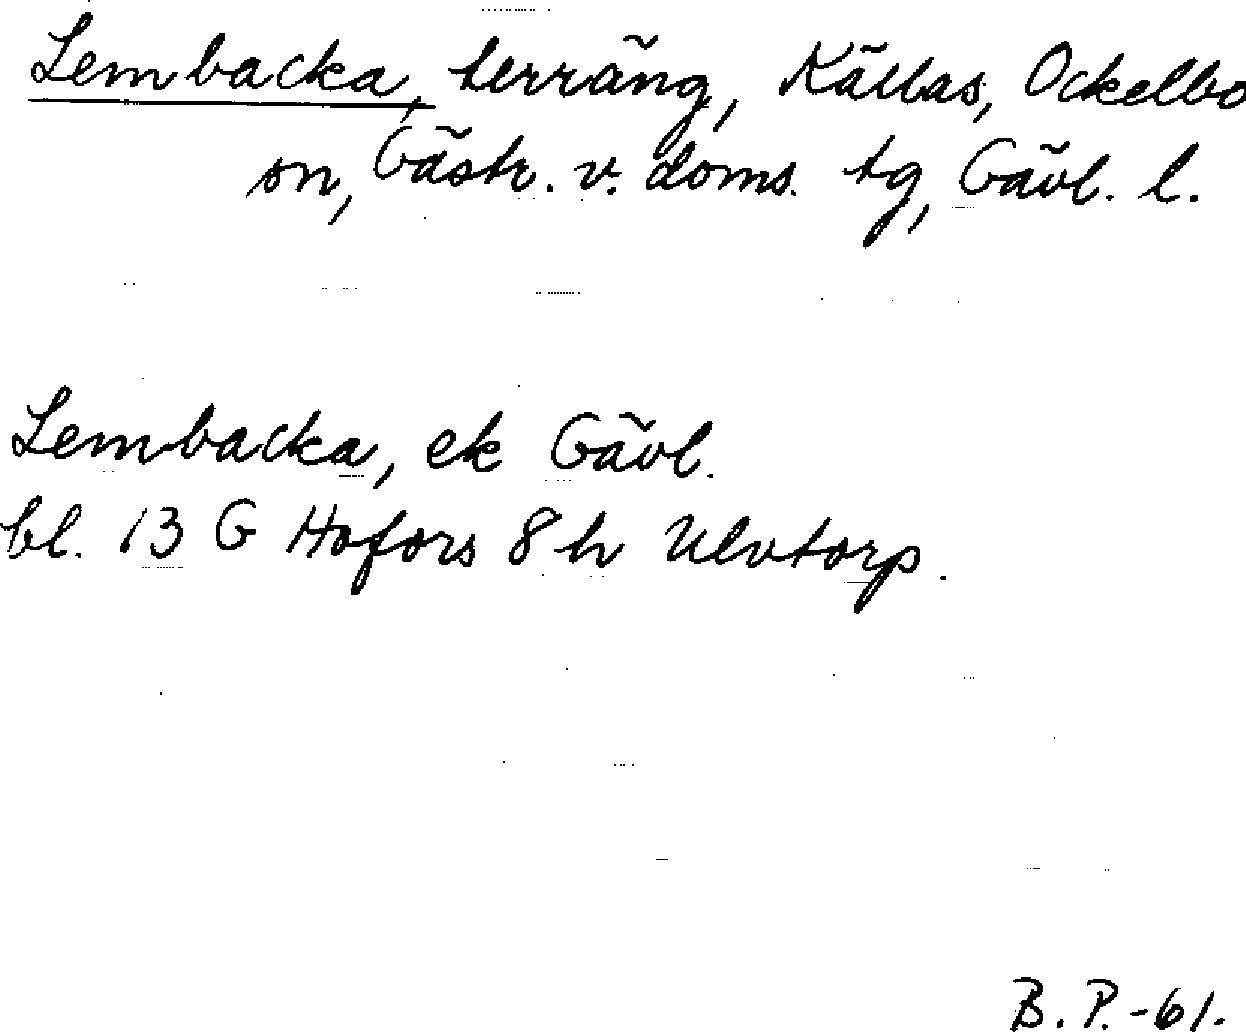 Lembacka, terräng, Källas, Ockelbo
sn, Gästr. v. doms. tg, Gävl. l.
Lembacka, ek Gävl.
bl. 13 G Hofors 8 h Ulvtorp.
B. P. -61.